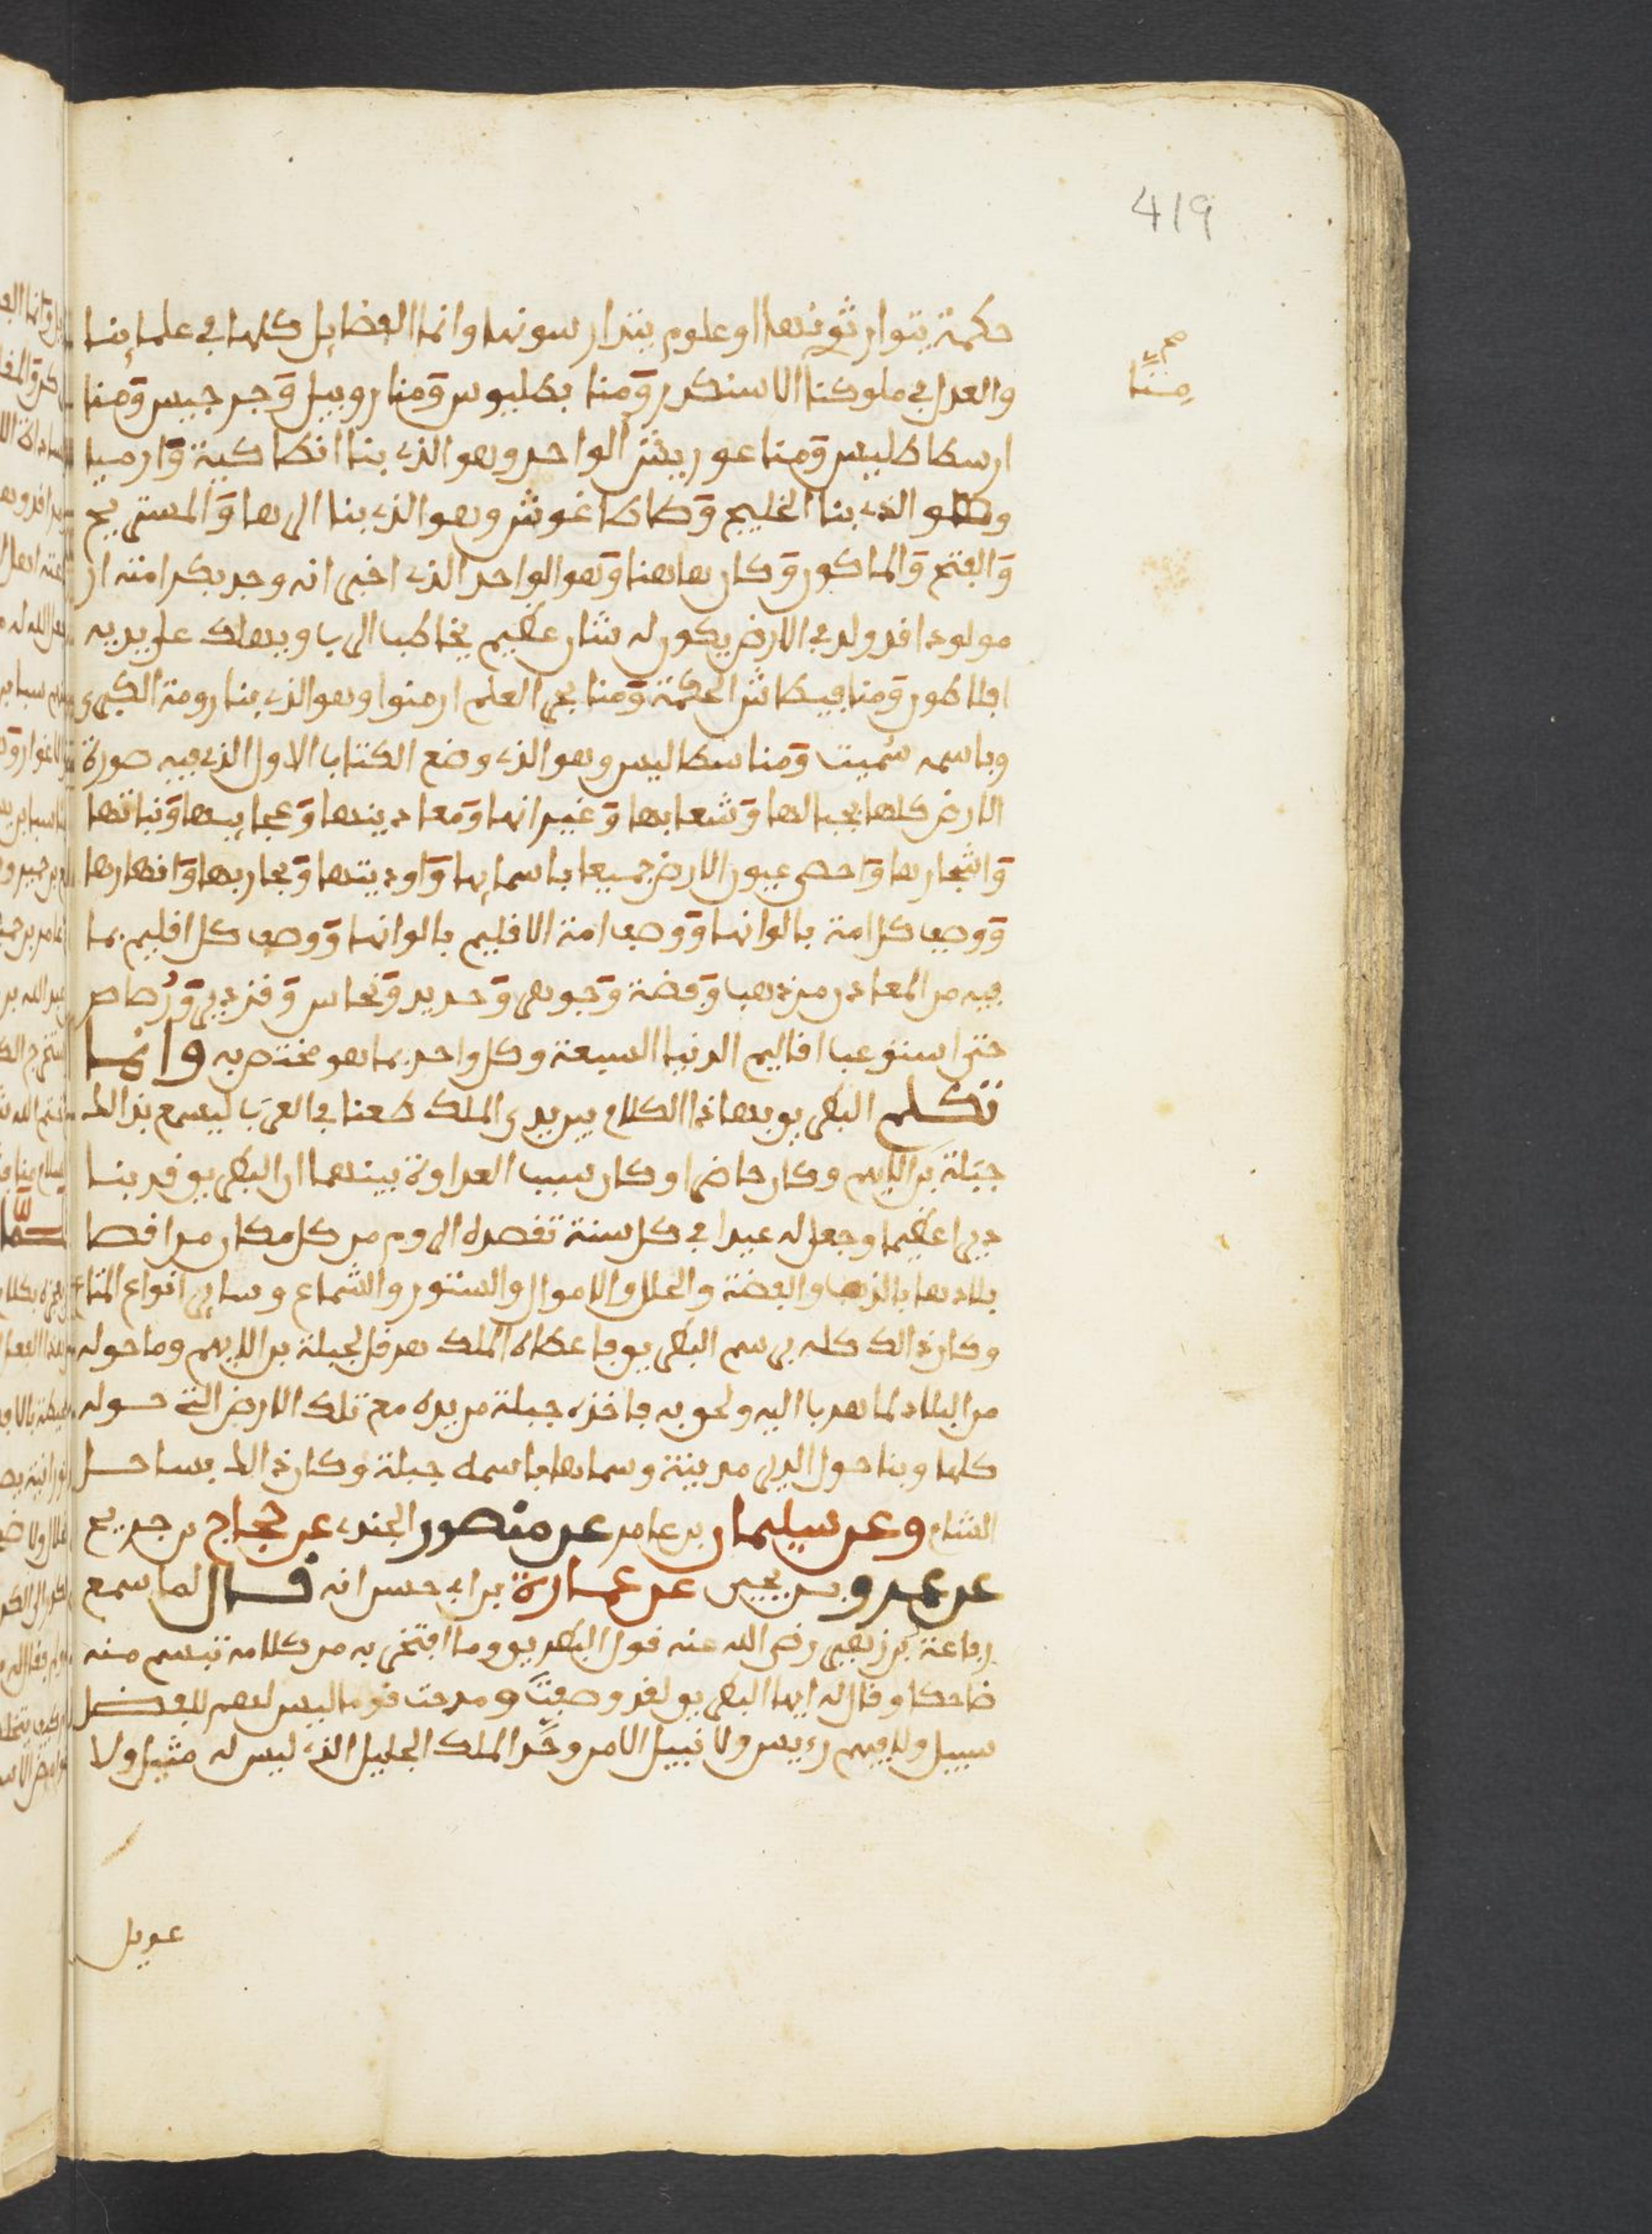 419
حكمة يتوارثونها او علوم يتدارسونها وانما الفضايل كلها في علماينا
صح منا
والعدل في ملوكنا الاسكندر ومنا بطليوس ومنا روبيل وجرجيس ومنا
ارسطاطليس ومنا عوريش الواحد وهو الذي بنا انطاكية وارميا
وهو الذي بنا الخليج وطاطاغوش وهو الذي بنا الرها والمستريح
والفتح والماكور وكان هاهنا وهو الواحد الذي اخبر انه وجد بكرامته ان
مولودا قد ولد في الارض يكون له شان عظيم يخاطب الرب ويهلك على يديه
افلاطون ومنا فيطاش الحكمة ومنا بحر العلم ارمنوا وهو الذي بنا رومة الكبرى
وباسمه سُميت ومنا سطاليس وهو الذي وضع الكتاب الاول الذي فيه صورة
الارض كلها بجبالها وشعابها وغيرانها ومعادينها وعجايبها ونباتها
واشجارها واحصى عيون الارض جميعا باسمايها واوديتها وبحارها وانهارها
ووصف كل امة بالوانها ووصف امة الاقليم بالوانها ووصف كل اقليم بما
فيه من المعادن من ذهب وفضة وجوهر وحديد ونحاس وقزدير ورصاص
حتى استوعب اقاليم الدنيا السبعة وكل واحد بما هو مختص به وانما
تكلم البطريو بهاذا الكلام بين يدي الملك طعنا في العرب ليسمع بذالك
جبلة بن الايهم وكان حاضرا وكان سبب العداوة بينهما ان البطريو قد بنا
ديرا عظيما وجعل له عيدا في كل سنة تقصده الروم من كل مكان من اقصا
بلادها بالذهب والفضة والحلل والاموال والستور والشماع وساير انواع المتاع
وكان ذالك كله برسم البطريو فاعطاه الملك هرقل لجبلة بن الايهم وما حوله
من البلاد لما هرب اليه ولحق به فاخذه جبلة من يده مع تلك الارض التي حوله
كلها وبنا حول الدير مدينة وسماها باسمه جبلة وكان ذالك بساحل
الشام وعن سليمان بن عامر عن منصور الجندي عن حجاج بن جريج
عن عمرو بن يحيى عن عمارة بن ابي حسن انه قال لما سمع
رفاعة بن زهير رضي الله عنه قول البطريو وما افتخر به من كلامه تبسم منه
ضاحكا وقال له ايها البطريو لقد وصفت ومدحت قوما ليس لهم للفضل
سبيل ولا فيهم رءيس ولا نبيل الا من وحّد الملك الجليل الذي ليس له مثيل ولا
عديل